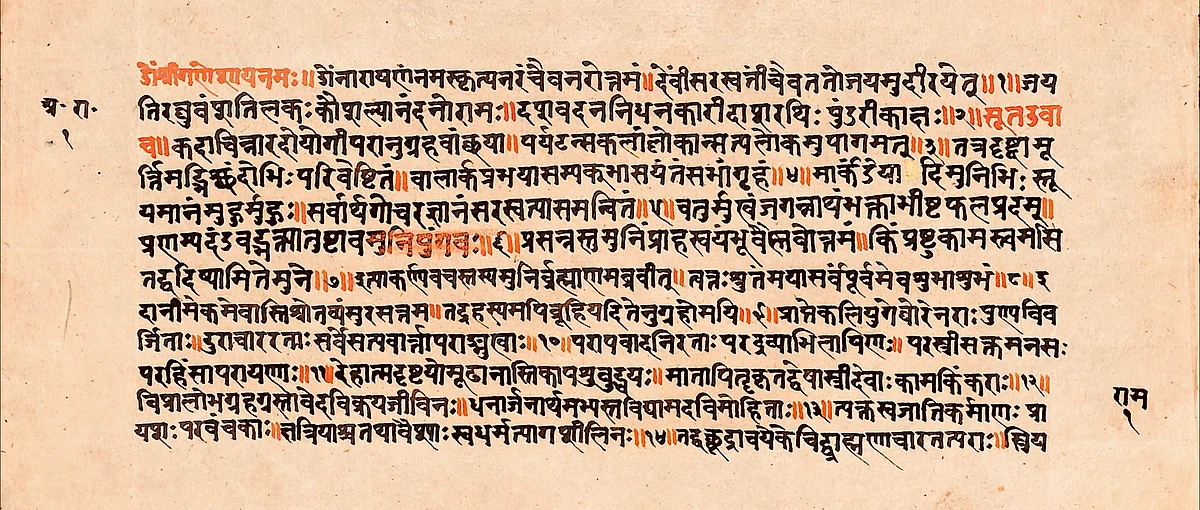 ओंश्रीगणेशायनमः॥ ओंनारायणंनमस्कृत्यनरंचैवनरोत्तमं॥देवींसरस्वतींचैवततोजयमुदीरयेत्॥१॥जय
अ॰ रा॰
१
तिरघुवंशतिलकःकौशल्यानंदनोरामः॥दशवदननिधनकारीदाशरथिःपुंडरीकाक्षः॥२॥सूतउवा
च॥कदाचिन्नारदोयोगीपरानुग्रहवांछया॥पर्यटन्सकलांलोकान्सत्यलोकमुपागमत्॥३॥तत्रदृष्ट्वामू
र्त्तिमद्भिश्छंदोभिःपरिवेष्टितं॥बालार्कप्रभयासम्यक्भासयंतंसभांगृहं॥४॥मार्कंडेया दिमुनिभिःस्तू
यमानंमुहुर्मुहुः॥सर्वार्थगोचरज्ञानंसरस्वत्यासमन्वितं॥५॥चतुर्मुखंजगन्नाथंभक्ताभीष्टफलप्रदम्॥
प्रणम्यदंडवद्भक्त्यातुष्टावमुनिपुंगवः॥६॥प्रसन्नस्तुमुनिंप्राहस्वयंभूर्वैष्णवोत्तमं॥किंप्रष्टुकामस्त्वमसि
तद्वदिष्यामितेमुने॥७॥इत्याकर्ण्यवचस्तस्यमुनिर्ब्रह्माणमब्रवीत्॥त्वत्तःश्रुतंमयासर्वंपूर्वमेवशुभाशुभं॥८॥इ
दानीमेकमेवास्तिश्रोतव्यंसुरसत्तम॥तद्रहस्यमपिब्रूहियदितेनुग्रहोमयि॥९॥प्राप्तेकलियुगेघोरेनराःपुण्यविव
र्जिताः॥दुराचाररताःसर्वेसत्यवार्त्तापराङ्मुखाः॥१०॥परापवादनिरताःपरद्रव्याभिलाषिणः॥परस्त्रीसक्तमनसः
परहिंसापरायणाः॥११॥देहात्मदृष्टयोमूढानास्तिकापशुबुद्धयः॥मातापितृकृतद्वेषास्त्रीदेवाःकामकिंकराः॥१२॥
राम
१
विप्रालोभग्रहग्रस्तावेदविक्रयजीविनः॥धनार्जनार्थमभ्यस्तविद्यामदविमोहिताः॥१३॥त्यक्तस्वजातिकर्माणःप्रा
यशःपरवंचकाः॥क्षत्रियाश्चतथावैश्याःस्वधर्मत्यागशीलिनः॥१४॥तद्वच्छूद्राश्चयेकेचिद्ब्राह्मणाचारतत्पराः॥स्त्रिय